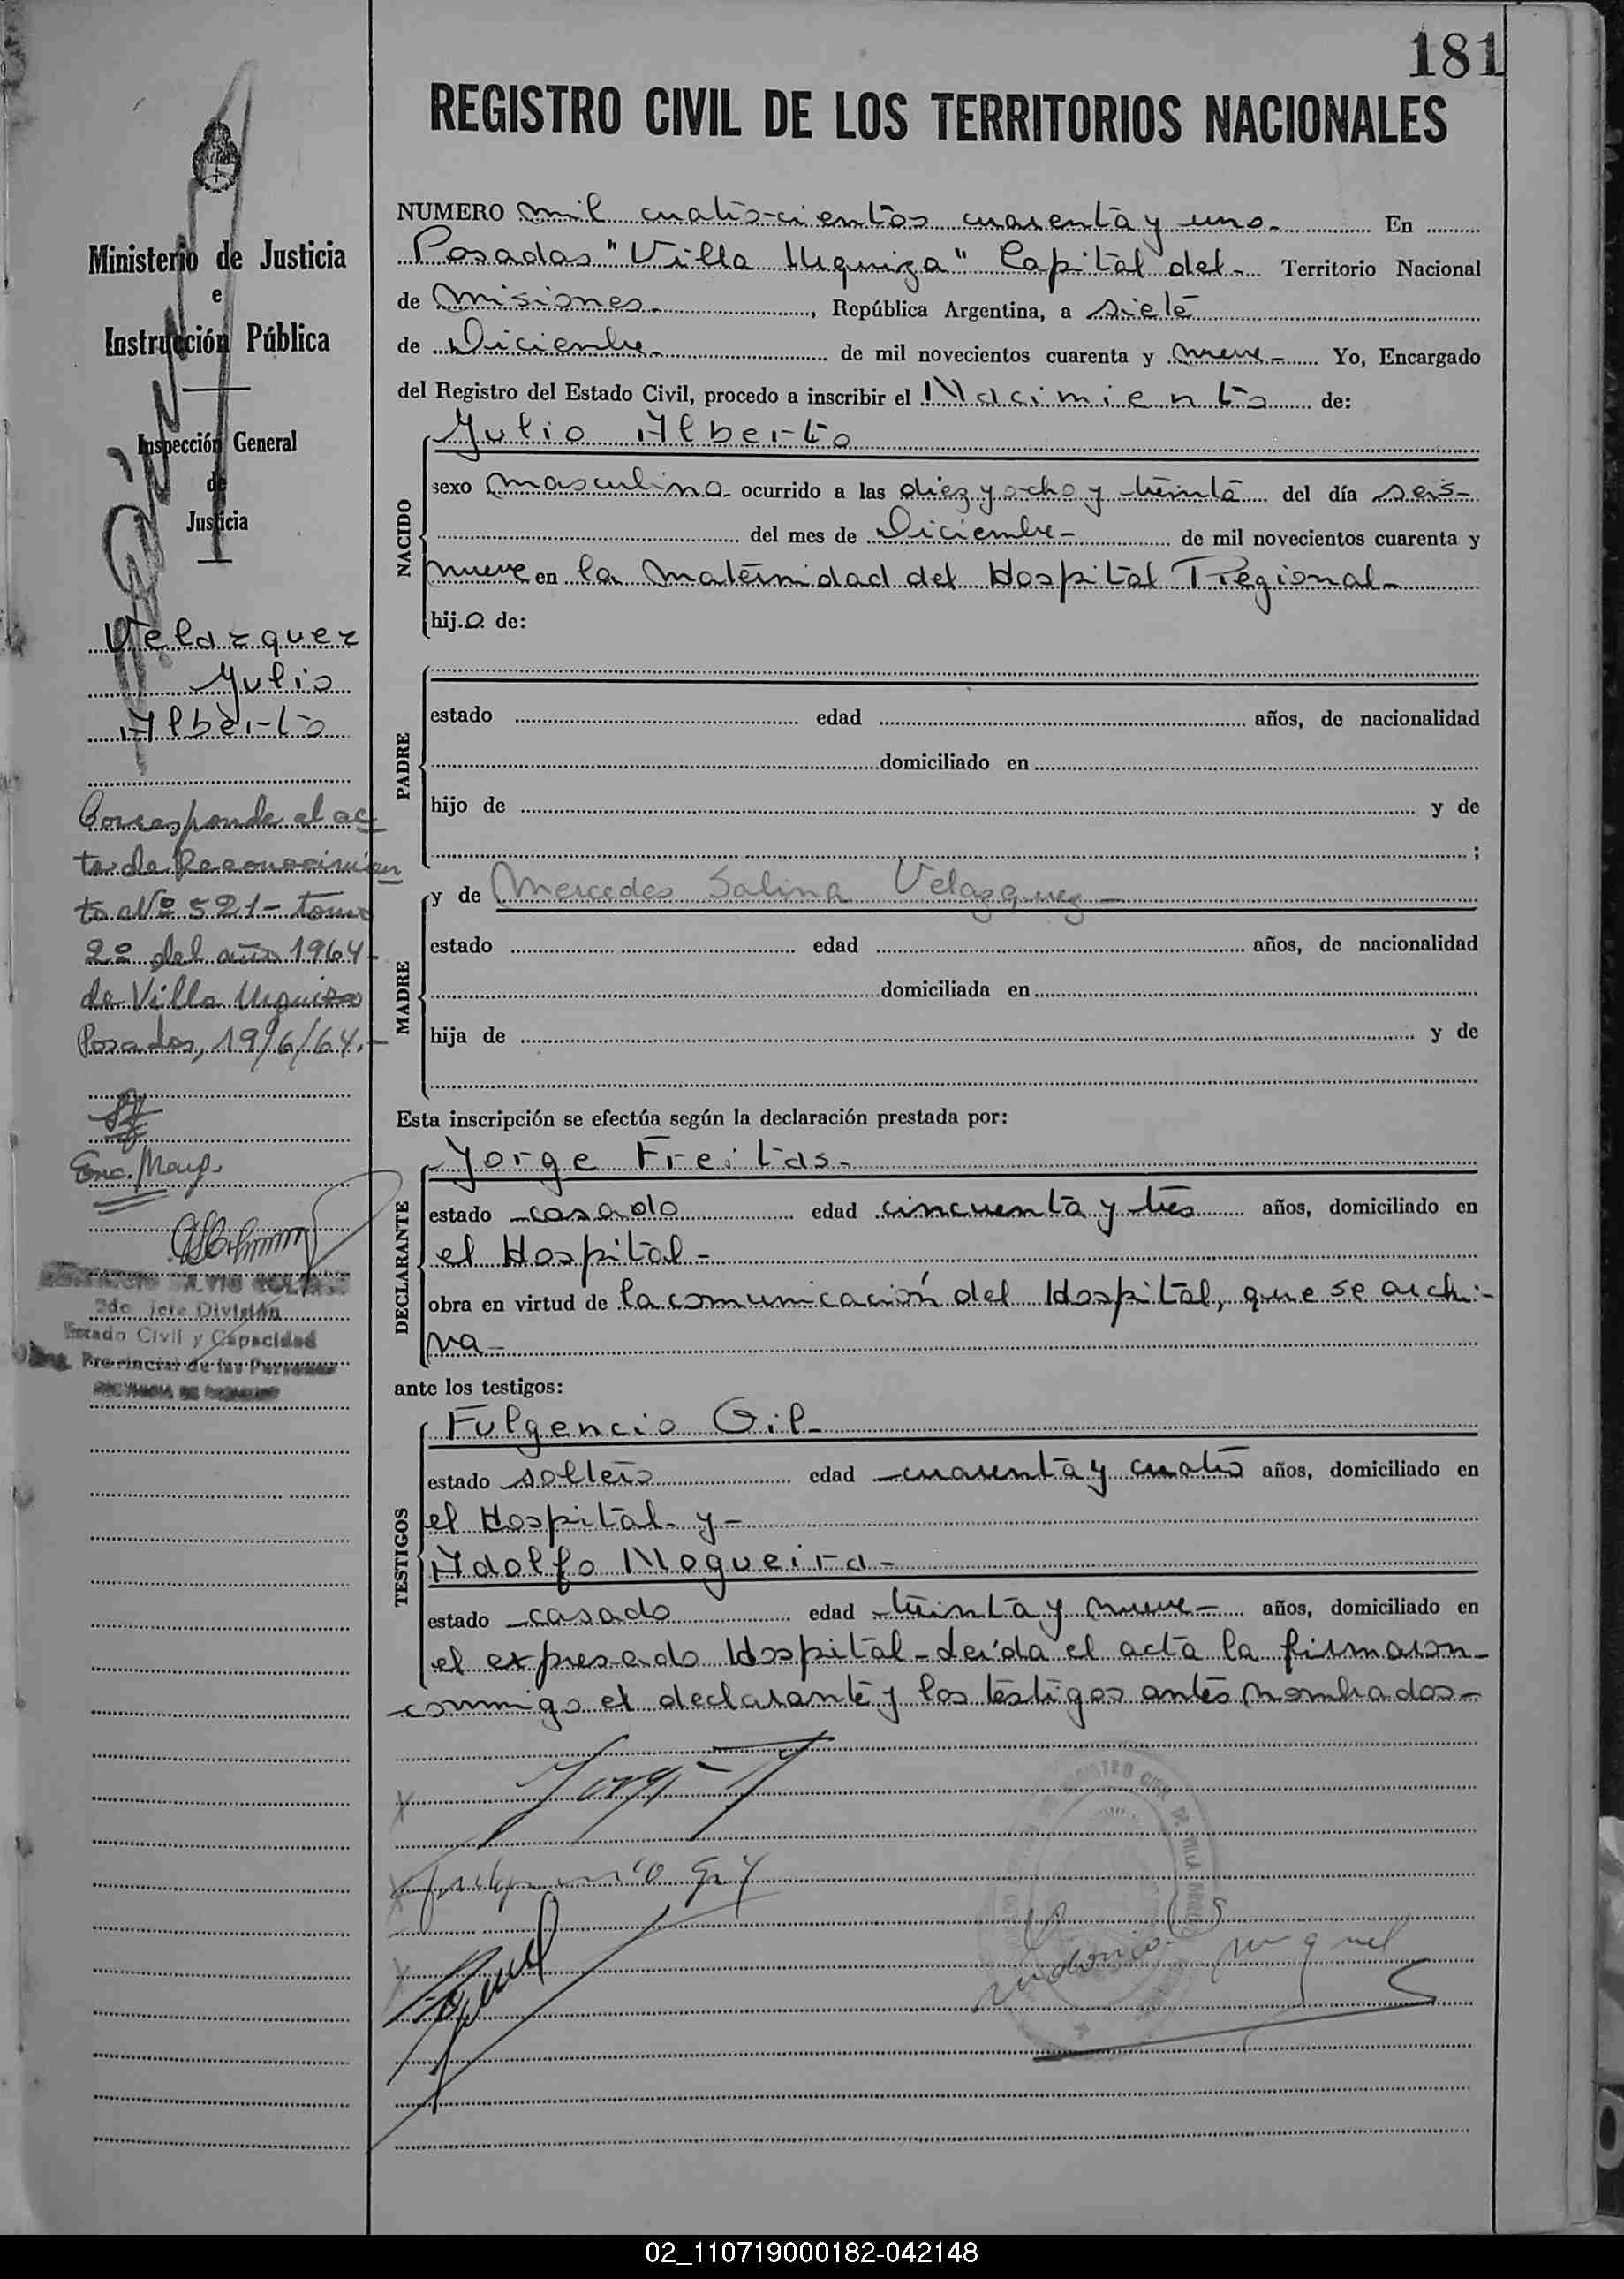 181
REGISTRO CIVIL DE LOS TERRITORIOS NACIONALES
Ministerio de Justicia
e
Instrucción Pública
Inspección General
de
Justicia
Velazquez
Julio
Alberto
Corresponde al ac
ta de Reconocimien
to Nº 521 - tomo
2º del año 1964 -
de Villa Urquiza
Posadas, 19/6/64.-
Enc. Mayp.
2do Jefe División
Estado Civil y Capacidad
Provincial de las Personas
NUMERO mil cuatro-cientos cuarenta y uno.- En
Posadas "Villa Urquiza" Capital del - Territorio Nacional
de Misiones.-, República Argentina, a siete
de Diciembre.- de mil novecientos cuarenta y nueve - Yo, Encargado
del Registro del Estado Civil, procedo a inscribir el Nacimiento de:
Julio Alberto
NACIDO
sexo masculino - ocurrido a las diez y ocho y treinta del día seis -
del mes de Diciembre - de mil novecientos cuarenta y
nueve en la Maternidad del Hospital Regional -
hijo de:
PADRE
estado edad años, de nacionalidad
domiciliado en
hijo de y de
;
MADRE
y de Mercedes Salina Velazquez -
estado edad años, de nacionalidad
domiciliada en
hija de y de
Esta inscripción se efectúa según la declaración prestada por:
DECLARANTE
Jorge Freitas -
estado casado edad cincuenta y tres años, domiciliado en
el Hospital -
obra en virtud de la comunicación del Hospital, que se archi-
va -
ante los testigos:
TESTIGOS
Fulgencio Gil -
estado soltero edad cuarenta y cuatro años, domiciliado en
el Hospital - y -
Adolfo Nogueira -
estado casado edad treinta y nueve - años, domiciliado en
el expresado Hospital - Leída el acta la firmaron -
conmigo el declarante y los testigos antes nombrados -
02_110719000182-042148